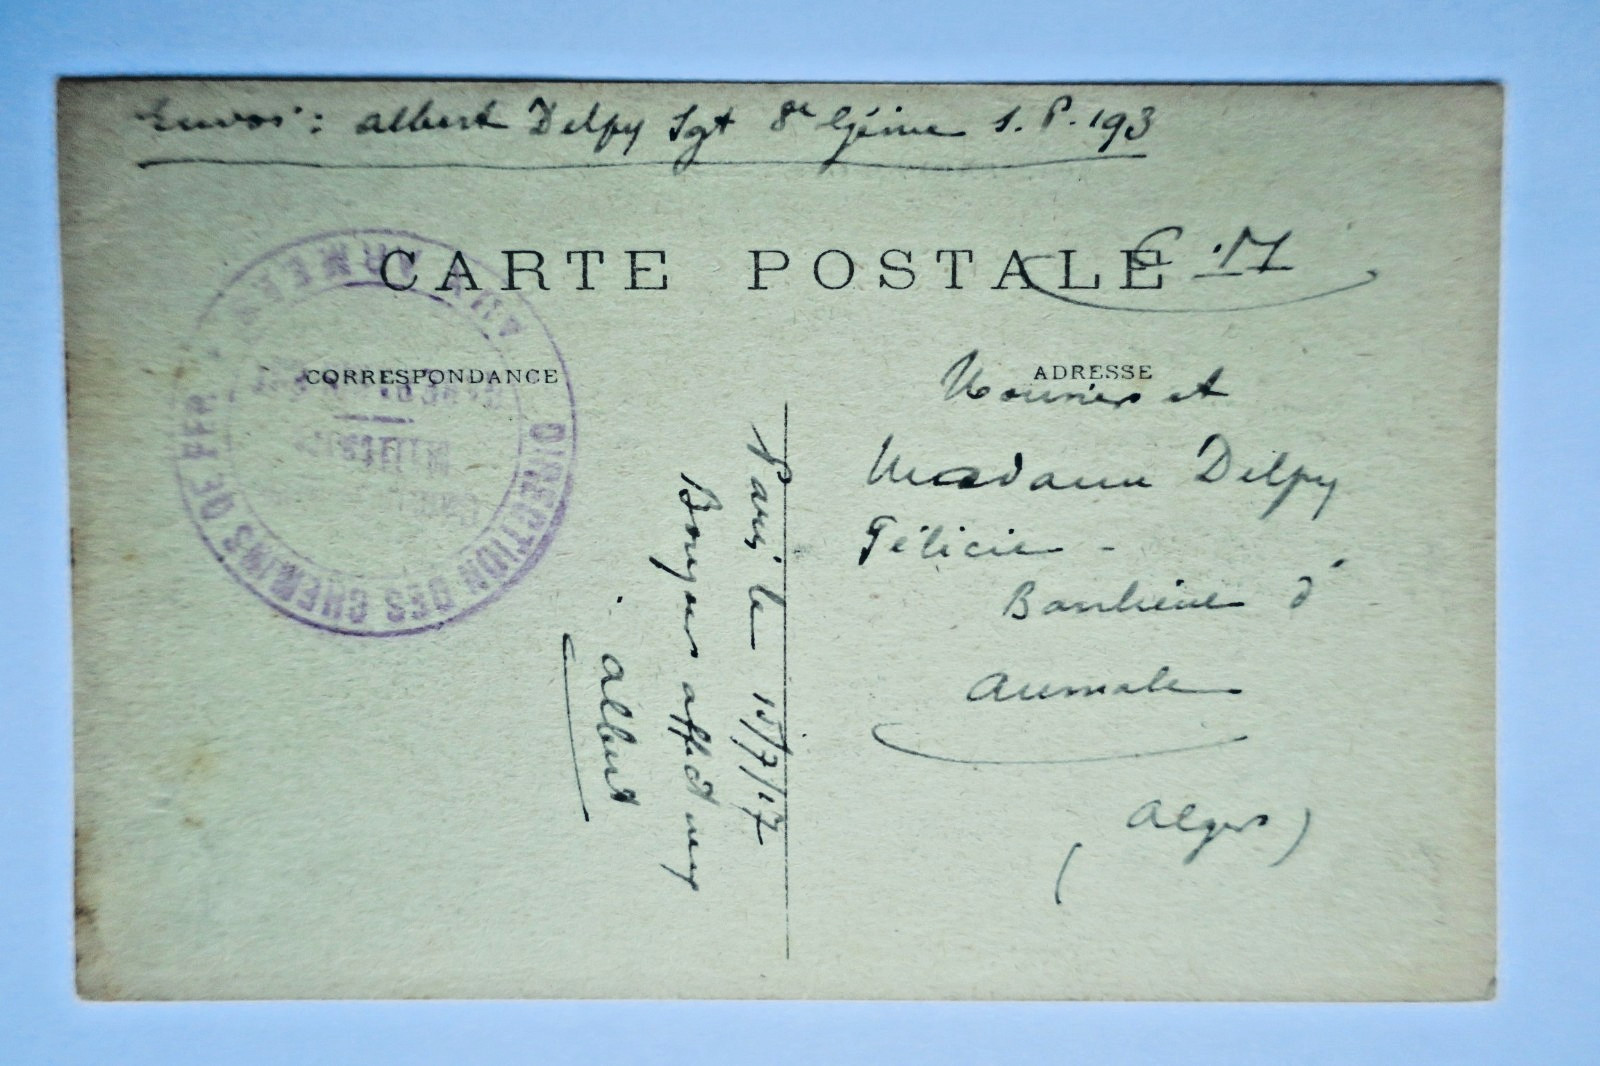 Envoi : Albert Delpy Sgt 8e Génie S.P. 193
CARTE POSTALE
F.M
CORRESPONDANCE
ADRESSE
DIRECTION DES CHEMINS DE FER
AUX ARMEES
Paris le 15/7/17
Bonjour affect
Albert
Monsieur et
Madame Delpy
Félicien -
Banlieue d'
Aumale
(Alger)